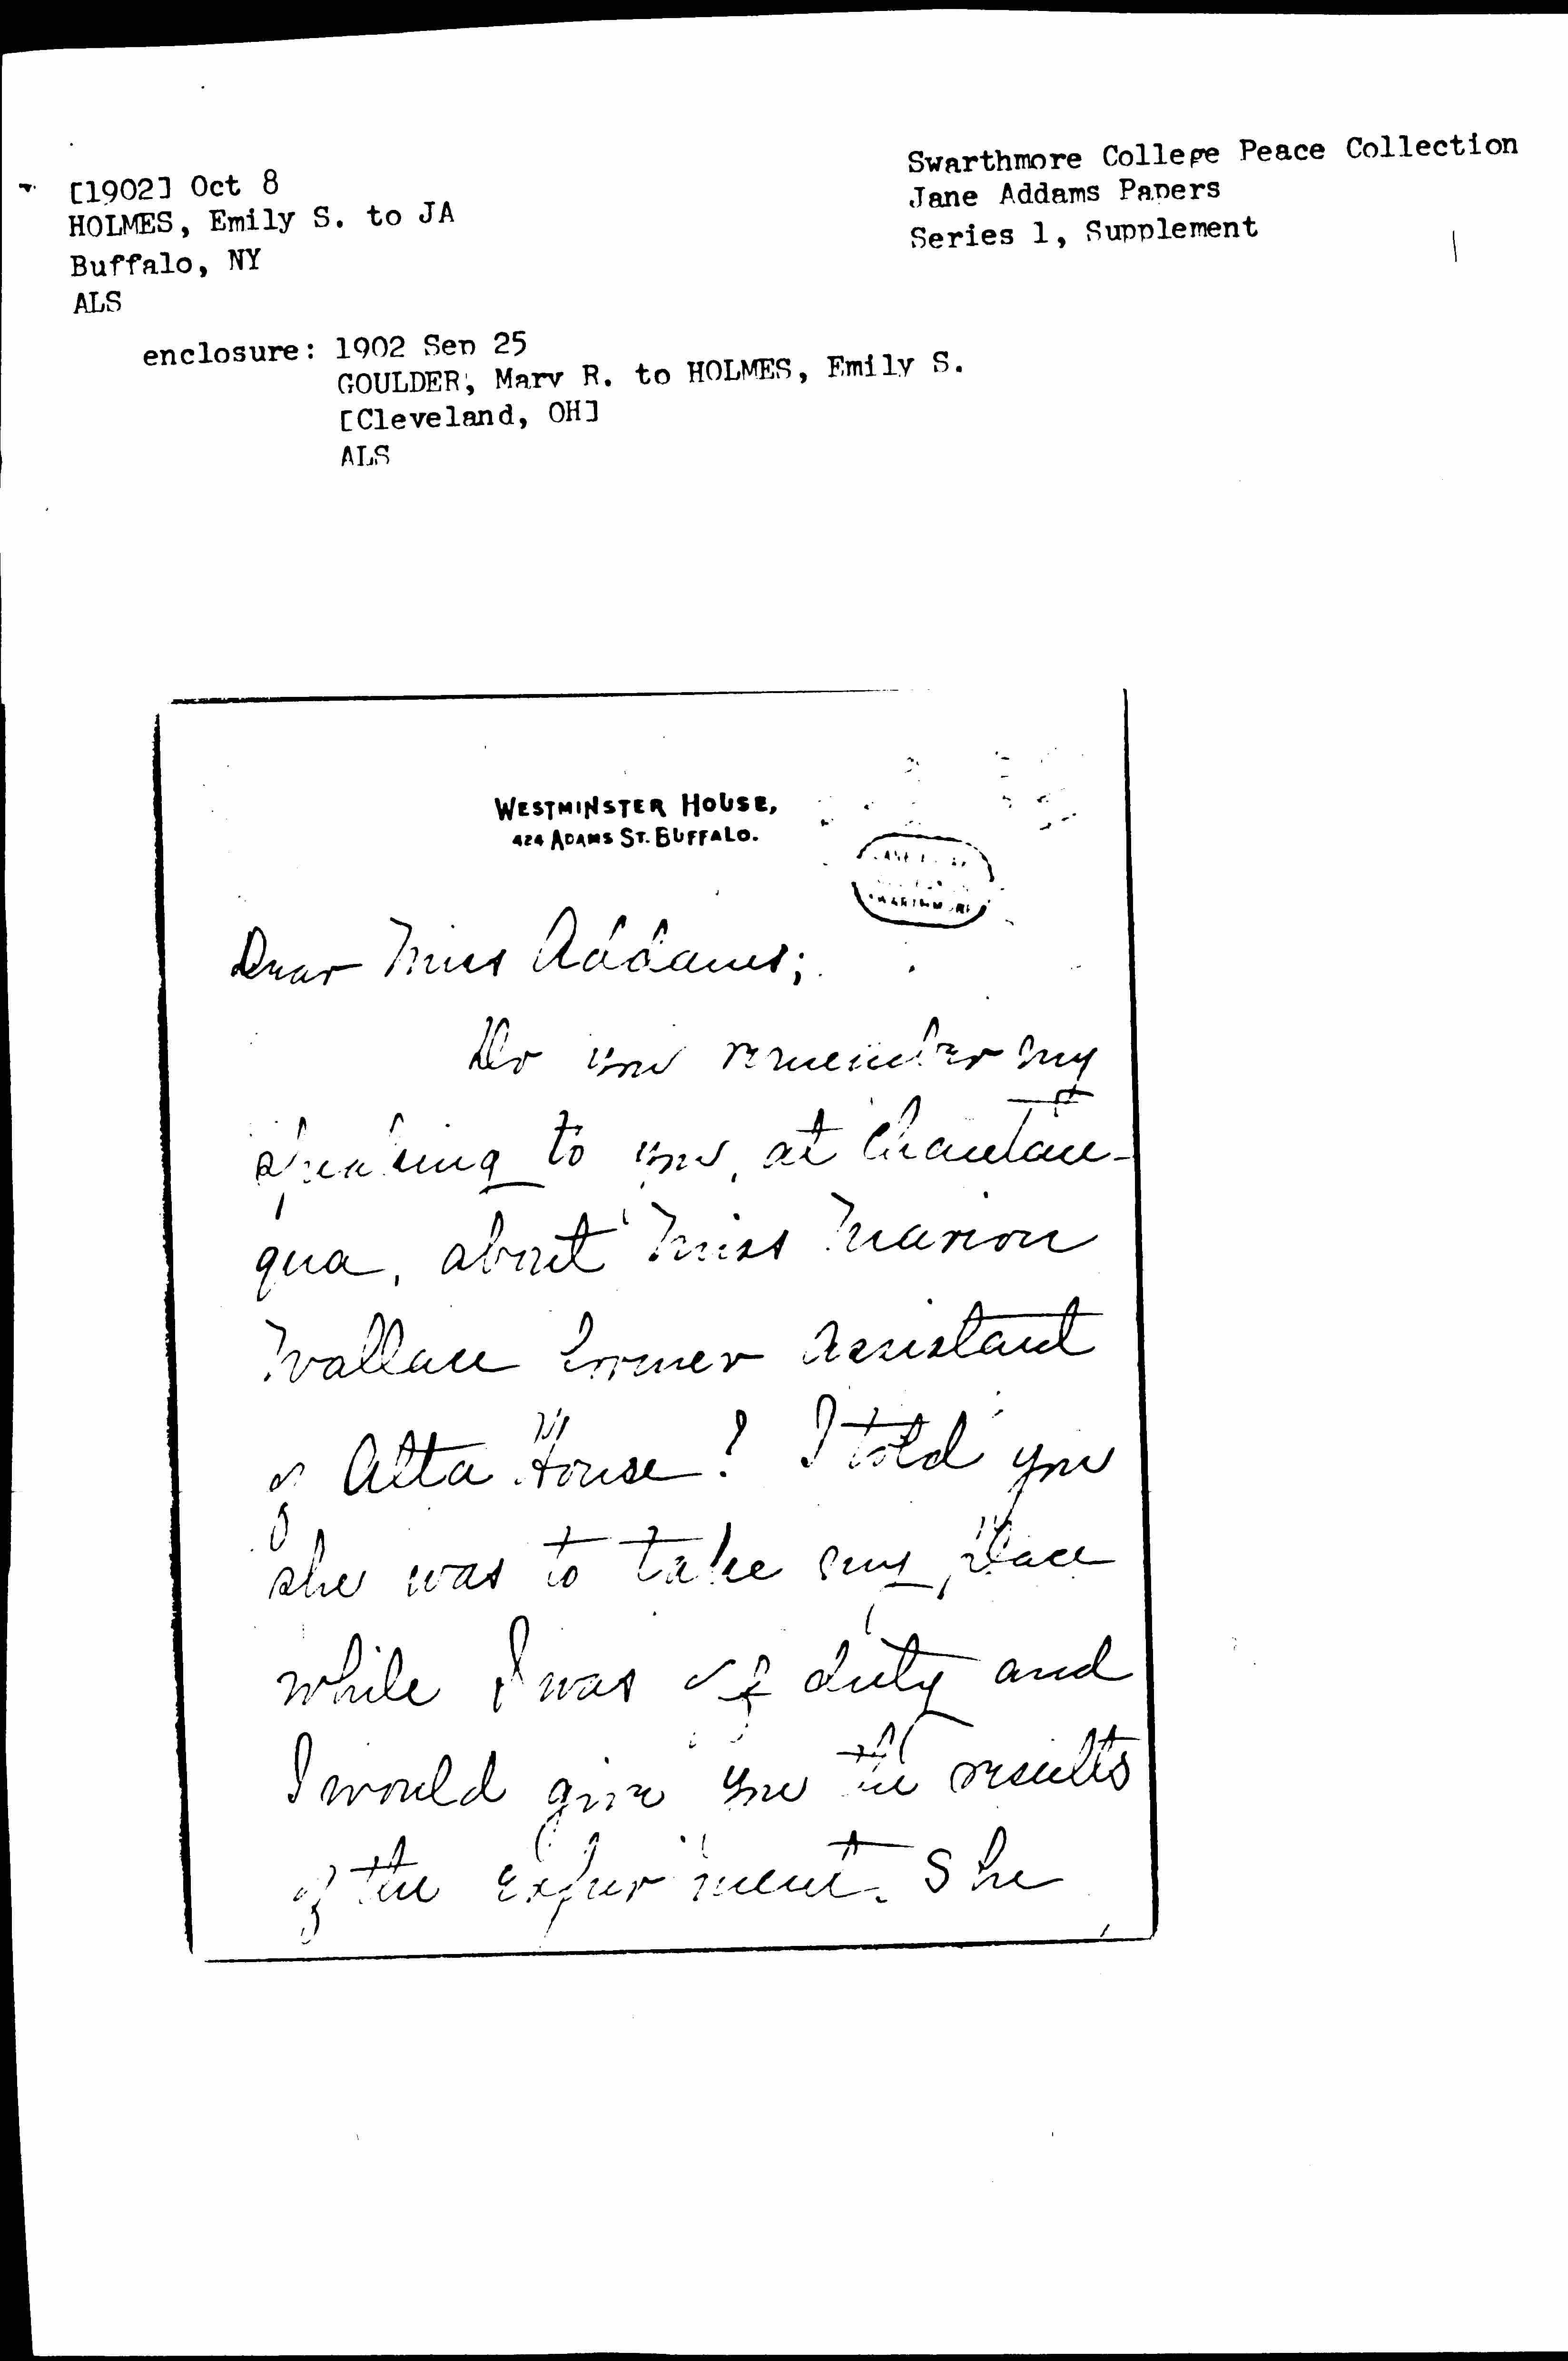 [1902] Oct 8
HOLMES, Emily S. to JA
Buffalo, NY
ALS
enclosure: 1902 Sep 25
GOULDER, Mary R. to HOLMES, Emily S.
[Cleveland, OH]
ALS
Swarthmore College Peace Collection
Jane Addams Papers
Series 1, Supplement
WESTMINSTER HOUSE,
424 ADAMS ST. BUFFALO.
Dear Miss Addams;
Do you remember my
speaking to you, at Chautau-
qua, about Miss Marion
Wallace former assistant
of Alta House? I told you
she was to take my place
while I was off duty and
I would give you the results
of the experiment. She